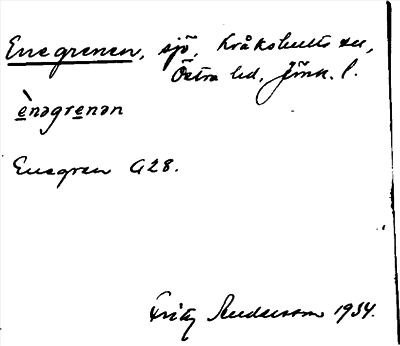 Enegrenen, sjö, Kråkshults sn,
Östra hd, Jönk. l.
ènəgrenən
Enegren G28.
Fritz Andersson 1934.